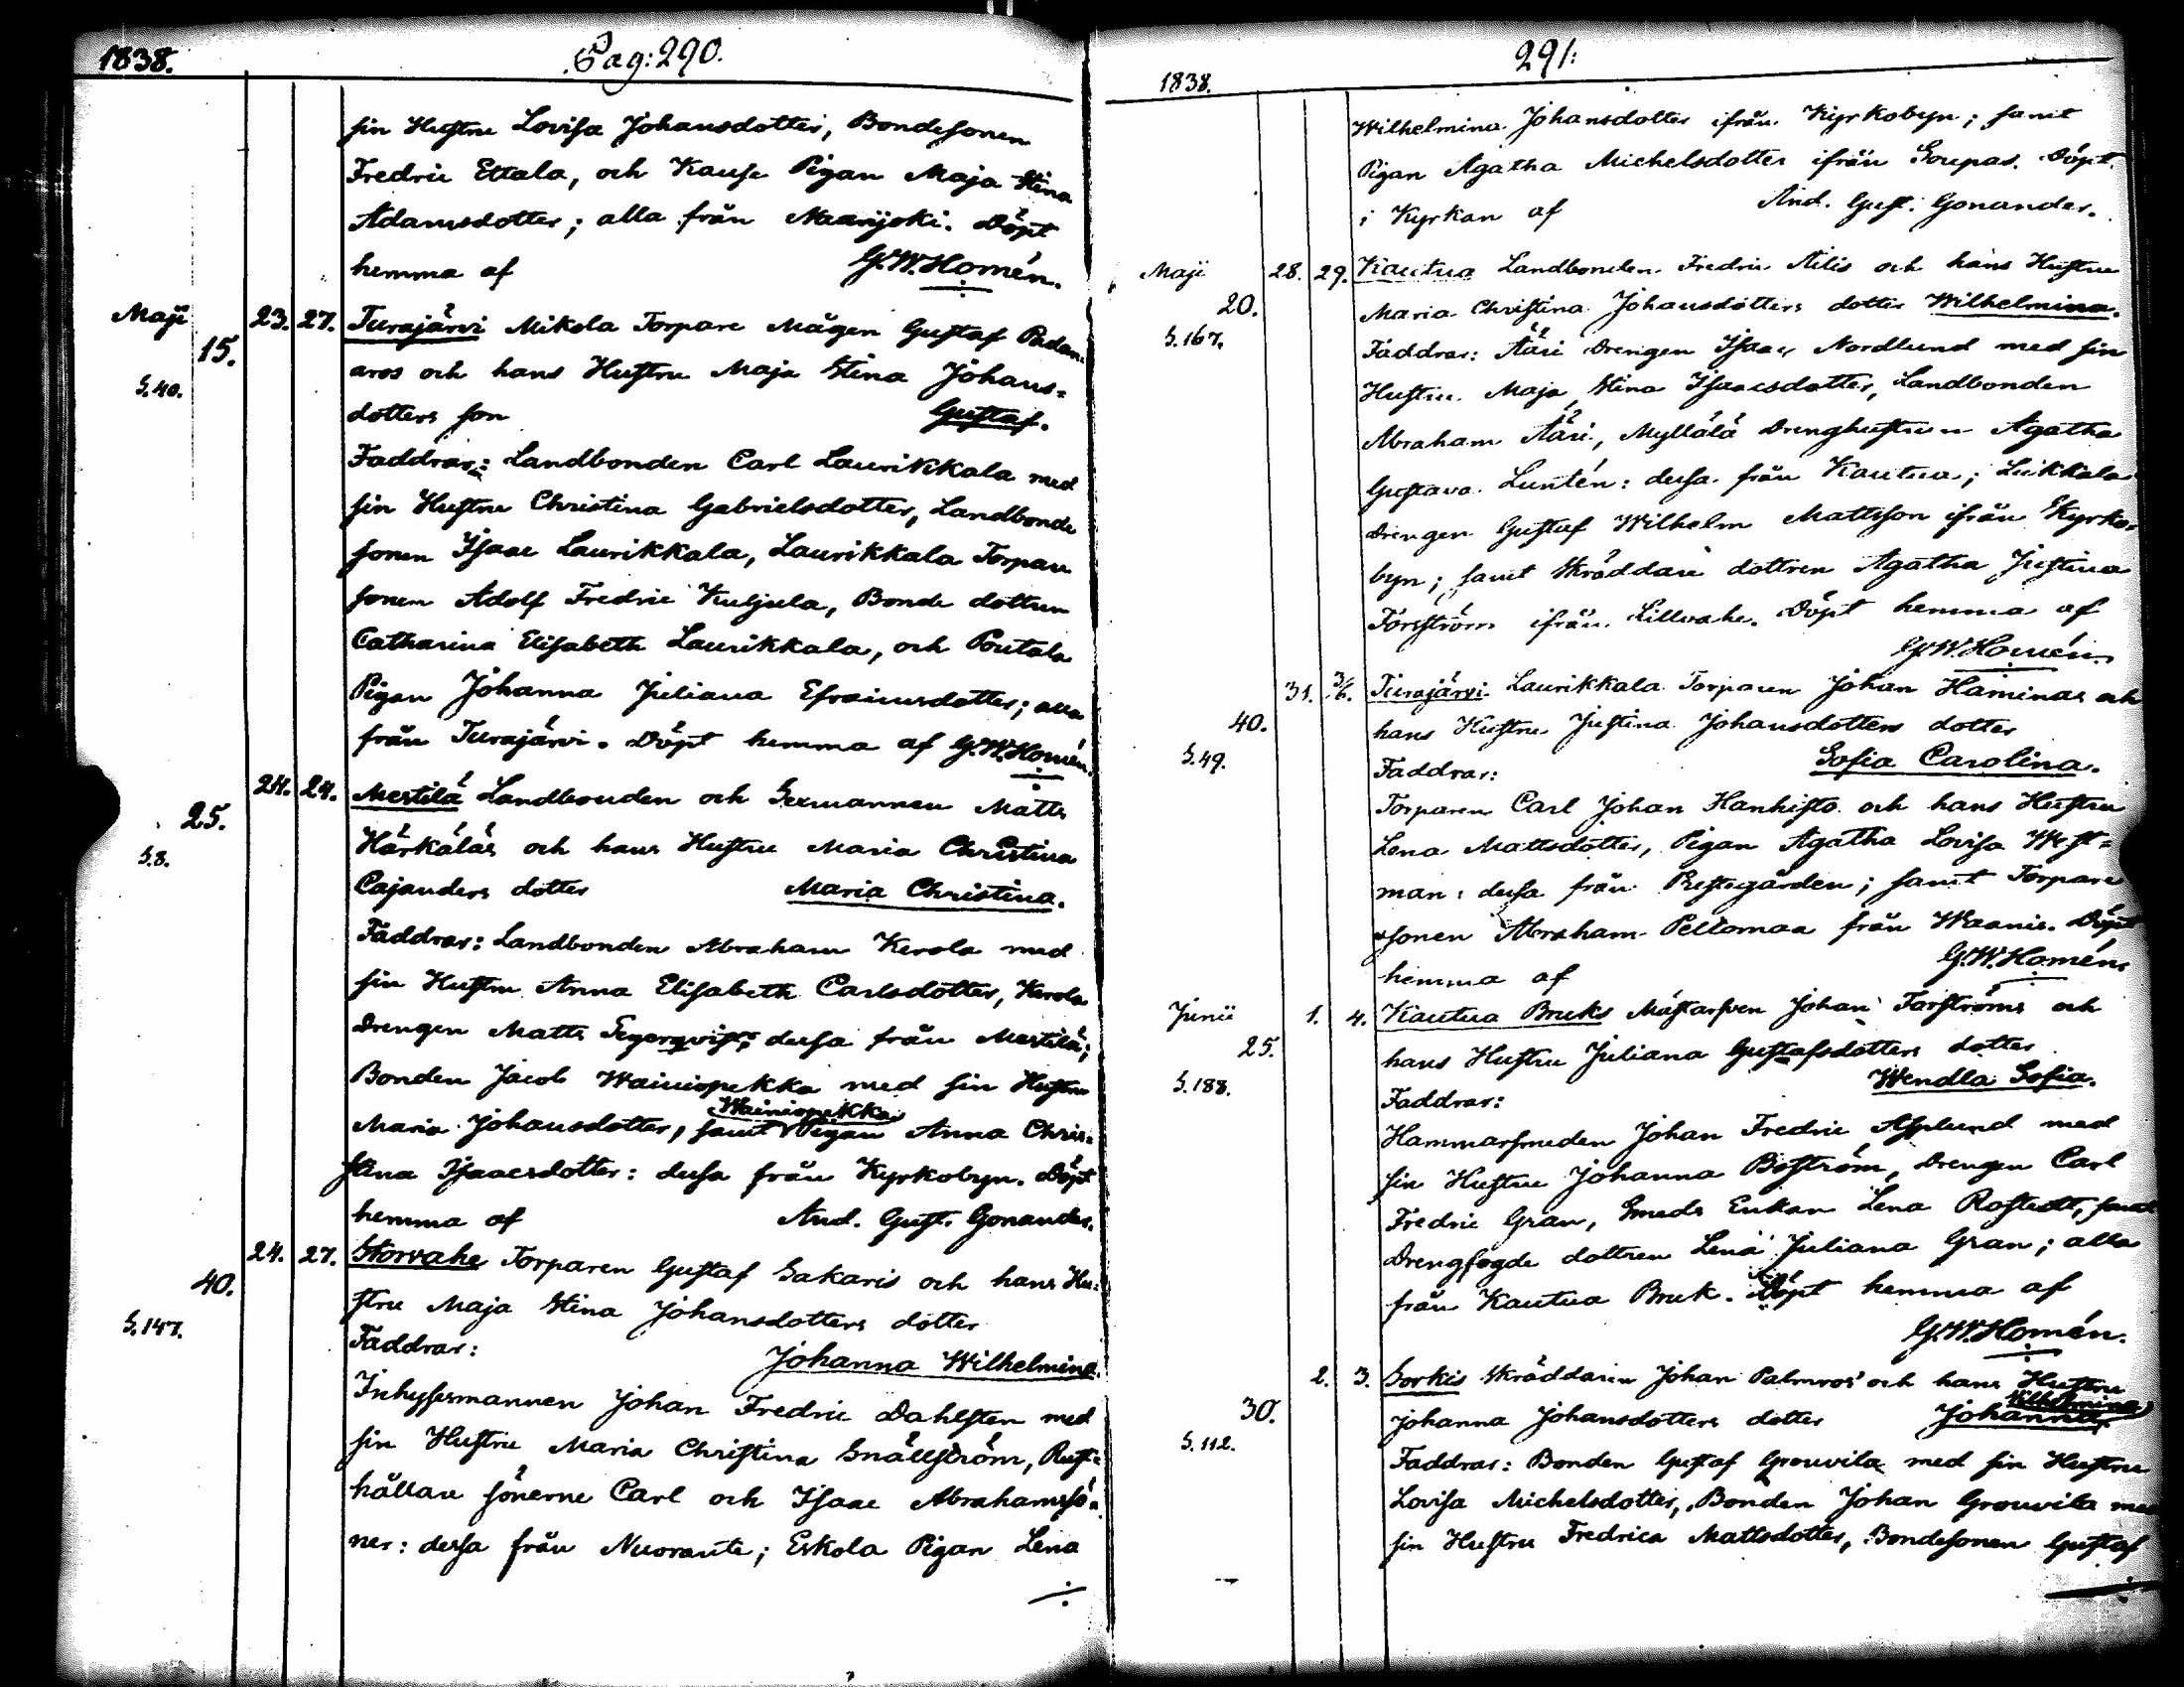 1838. Pag: 290.
sin Hustru Lovisa Johansdotter, Bondesonen
Fredric Ettala, och Kause Pigan Maja Stina
Adamsdotter; alla från Naarijoki. Döpt
hemma af G.W. Homén.
Maji 23. 27. Turajärvi Mikola Torpare Mågen Gustaf Padan-
15. aros och hans Hustru Maja Stina Johans=
S. 40. dotters son Gustaf.
Faddrar: Landbonden Carl Laurikkala med
sin Hustru Christina Gabrielsdotter, Landbonde
sonen Isaac Laurikkala, Laurikkala Torpare
sonen Adolf Fredric Kuljula, Bonde dottren
Catharina Elisabeth Laurikkala, och Poutala
Pigan Johanna Juliana Efraimsdotter; alla
från Turajärvi. Döpt hemma af G.W. Homén.
24. 24. Mestilä Landbonden och Sexmannen Matts
25. Härkäläs och hans Hustru Maria Christina
S. 8. Cajanders dotter Maria Christina.
Faddrar: Landbonden Abraham Kerola med
sin Hustru Anna Elisabeth Carlsdotter, Kerola
Drengen Matts Tegerqvist; dessa från Mestilä;
Bonden Jacob Wainiopekka med sin Hustru
Maria Johansdotter, samt Wainiopekka Pigan Anna Chris=
tina Isaacsdotter: dessa från Kyrkobyn. Döpt
hemma af And. Gust. Gonander.
24. 27. Storvahe Torparen Gustaf Sakaris och hans Hu=
40. stru Maja Stina Johansdotters dotter
S. 147. Faddrar: Johanna Wilhelmina.
Inhysesmannen Johan Fredric Dahlsten med
sin Hustru Maria Christina Snällström, Rust=
hållare sönerne Carl och Isaac Abrahamssö=
ner: dessa från Nuoranta; Eskola Pigan Lena
1838. 291:
Wilhelmina Johansdotter ifrån Kyrkobyn; samt
Pigan Agatha Michelsdotter ifrån Soupas. Döpt
i Kyrkan af And. Gust. Gonander.
Maji 28. 29. Kautua Landbonden Fredric Äilis och hans Hustru
20. Maria Christina Johansdotters dotter Wilhelmina.
S. 167. Faddrar: Ääri Drengen Isaac Nordlund med sin
Hustru Maja Stina Isaacsdotter, Landbonden
Abraham Ääri, Myllälä Drenghustrun Agatha
Gustava Luntén: dessa från Kautua; Luikkala
Drengen Gustaf Wilhelm Mattsson ifrån Kyrko-
byn; samt Skräddare dottren Agatha Justina
Forsström ifrån Lillvahe. Döpt hemma af
G.W. Homén.
31. 3/6. Turajärvi Laurikkala Torparen Johan Haminas och
40. hans Hustru Justina Johansdotters dotter
S. 49. Faddrar: Sofia Carolina.
Torparen Carl Johan Hanhisto och hans Hustru
Lena Mattsdotter, Pigan Agatha Lovisa West=
man: dessa från Prestegården; samt Torpare
sonen Abraham Peltomaa från Waanie. Döpt
hemma af G.W. Homén.
Junii 1. 4. Kautua Bruks Mästarsven Johan Forströms och
25. hans Hustru Juliana Gustafsdotters dotter
S. 188. Faddrar: Wendla Sofia.
Hammarsmeden Johan Fredric Asplund med
sin Hustru Johanna Boström, Drengen Carl
Fredric Gran, Smeds Enkan Lena Rostedt, samt
Drengfogde dottren Lena Juliana Gran; alla
från Kautua Bruk. Döpt hemma af
G.W. Homén.
2. 3. Sorkis Skräddaren Johan Palmros' och hans Hustru
30. Johanna Johansdotters dotter Johanna Wilhelmina
S. 112. Faddrar: Bonden Gustaf Grouvila med sin Hustru
Lovisa Michelsdotter, Bonden Johan Grouvila med
sin Hustru Fredrica Mattsdotter, Bondesonen Gustaf